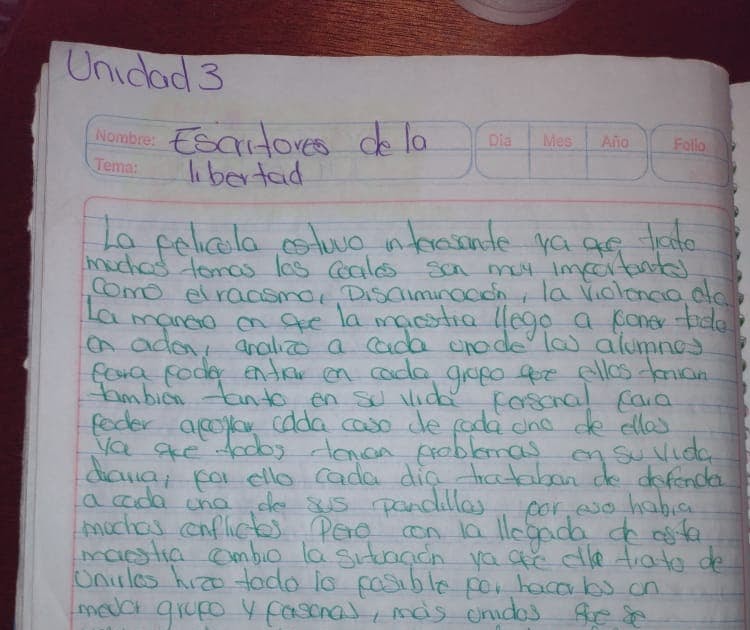 Unidad 3
Nombre: Escritores de la
Tema: libertad
Día Mes Año Folio
La pelicula estuvo interesante ya que trato
muchos temas los cuales son muy importantes
como el racismo, Discriminación, la violencia, etc.
La manera en que la maestra llego a poner todo
en orden, analizo a cada uno de los alumnos
para poder entrar en cada grupo que ellos tenian
tambien tanto en su vida personal para
poder apoyar cada caso de cada uno de ellos
ya que todos tenian problemas en su vida
diaria, por ello cada día trataban de defender
a cada una de sus pandillas por eso habia
muchos conflictos Pero con la llegada de esta
maestra cambio la situación ya que ella trato de
Unirlos hizo todo lo posible por hacerlos un
mejor grupo y personas, más unidos que se